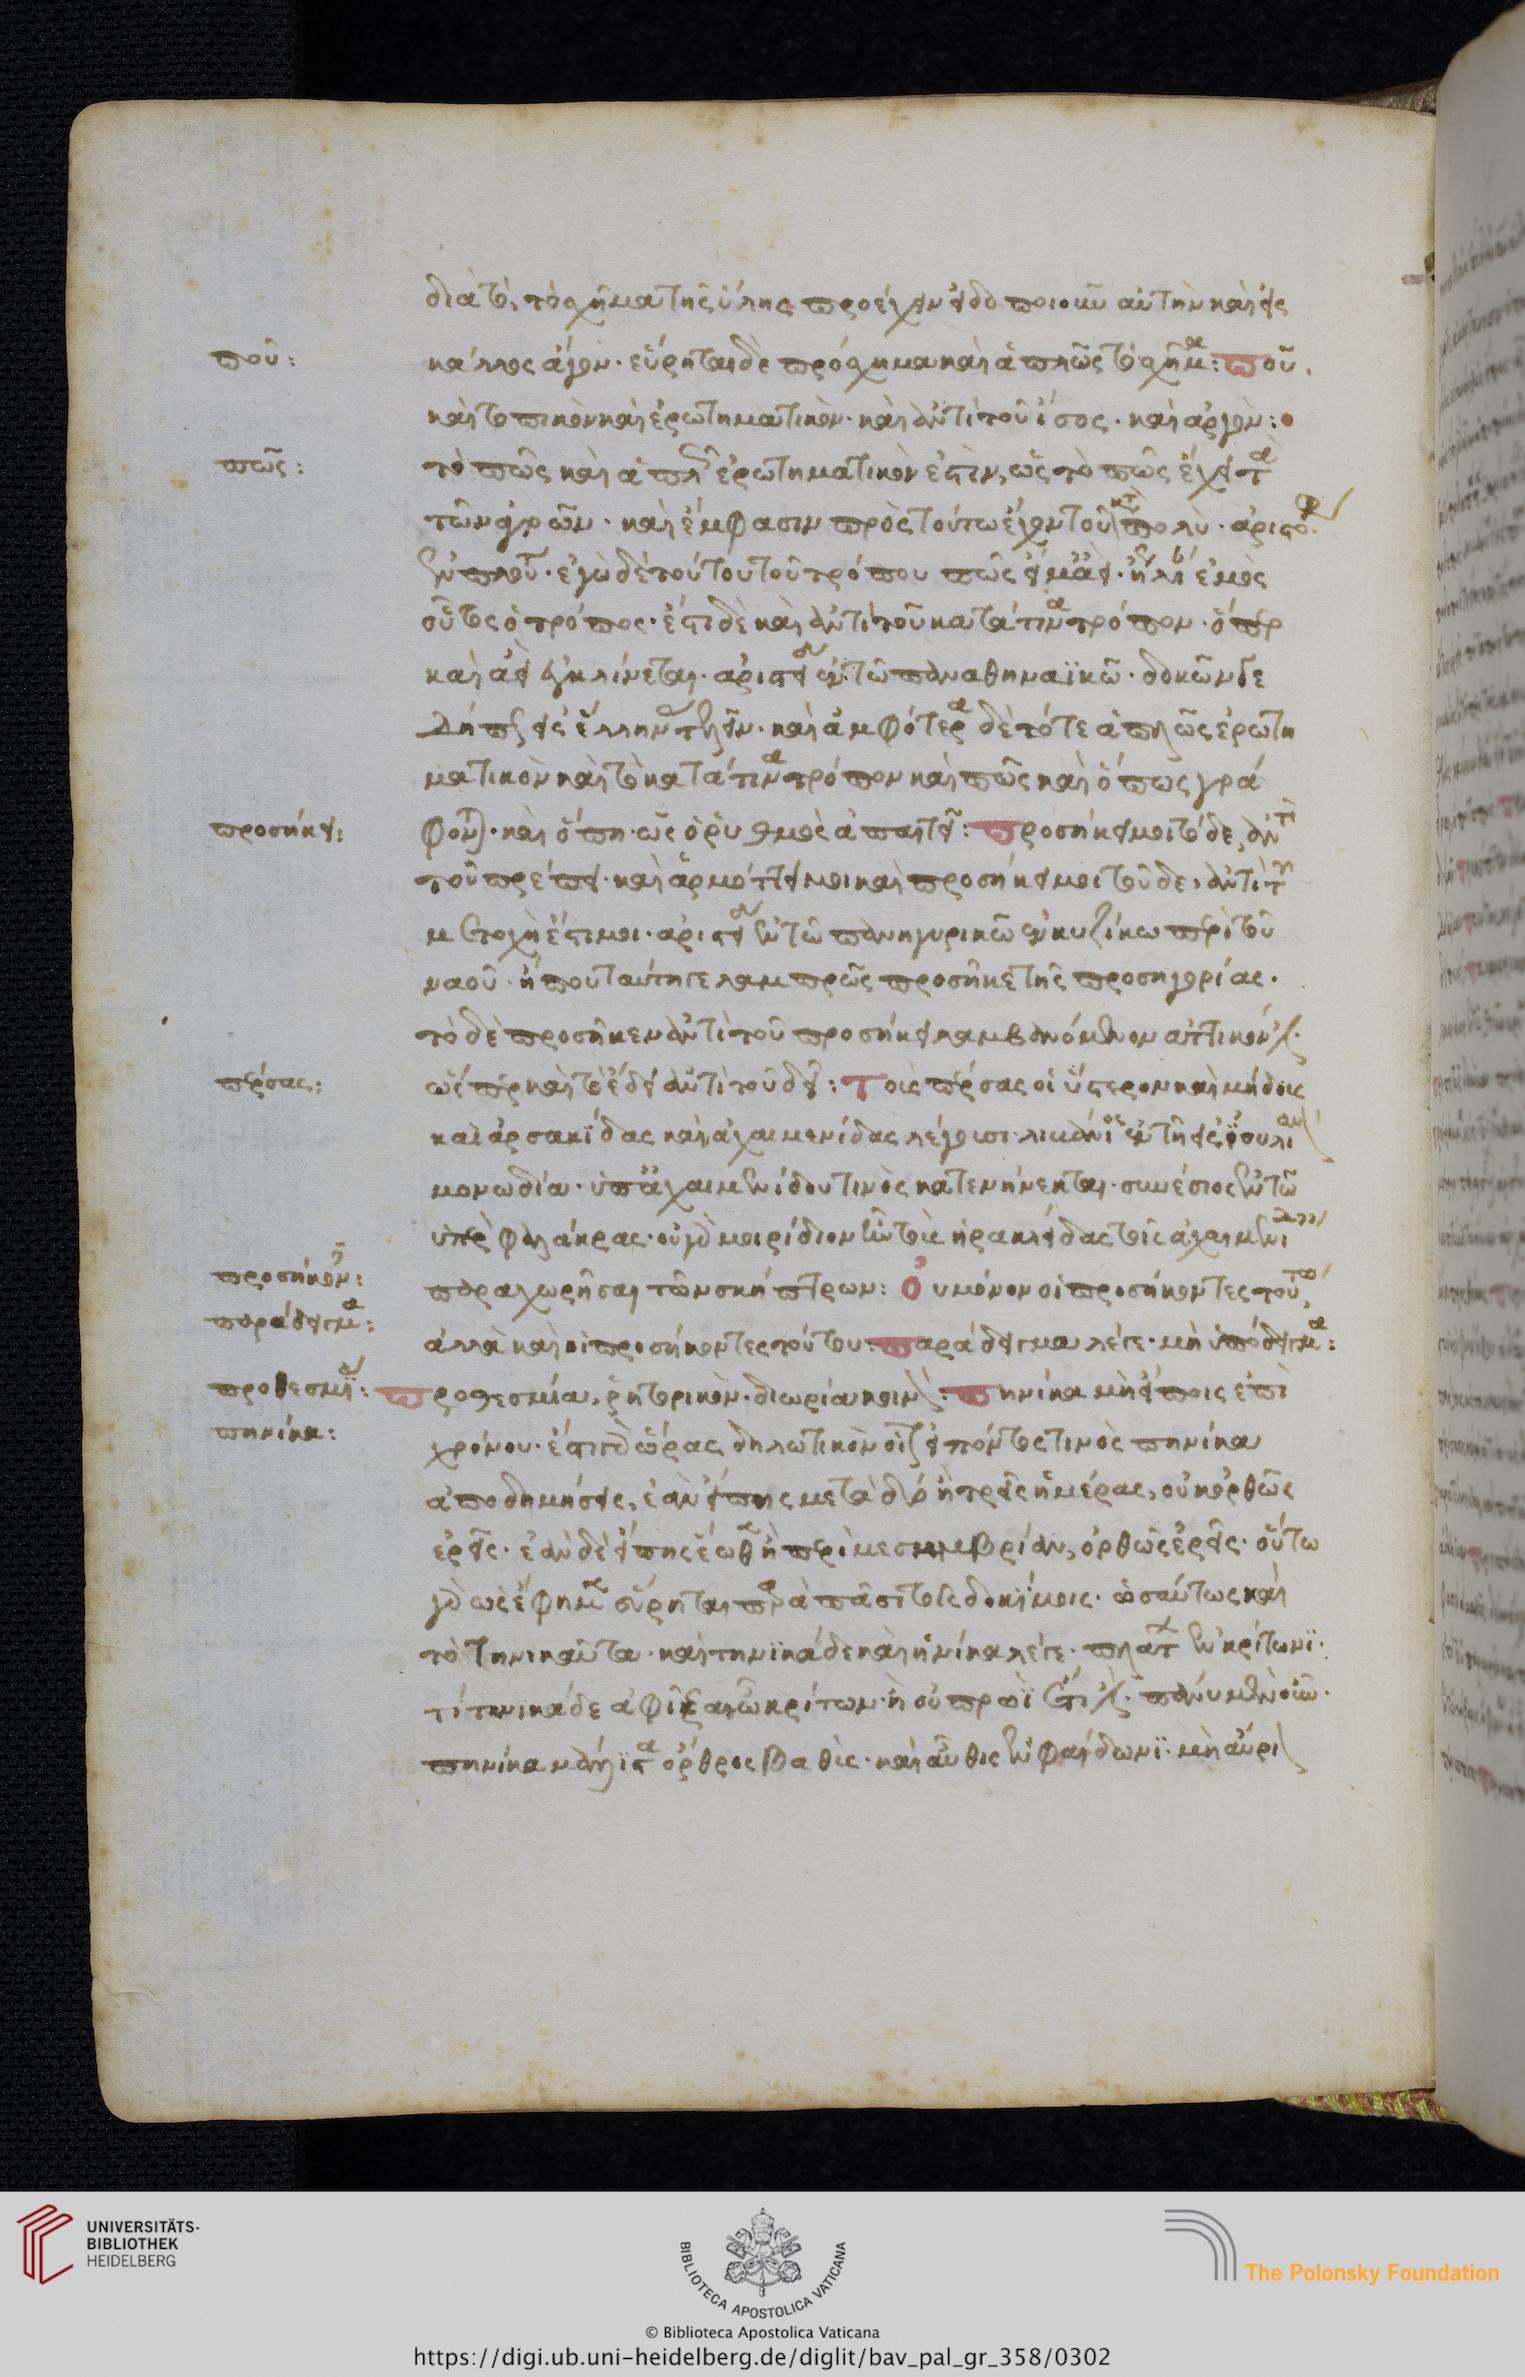 διὰ τὸ, τὸ σχῆμα τῆς ὕλης προέχειν εἰδοποιοῦν αὐτὴν καὶ εἰς
ποῦ:
κάλλος ἄγον· εὕρηται δὲ πρόσχημα καὶ ἁπλῶς τὸ σχῆμα: ποῦ,
καὶ τοπικὸν καὶ ἐρωτηματικὸν· καὶ ἀντὶ τοῦ ἴσως· καὶ ἀργὸν:
πῶς:
τὸ πῶς καὶ ἁπλῶς ἐρωτηματικὸν ἐστὶν, ὡς τὸ πῶς ἔχει τὰ
τῶν ἀγρῶν· καὶ ἔμφασιν πρὸς τούτω ἔχον τοῦ κατὰ πολὺ· ἀριστοφ
ἐν πλούτ· ἐγὼ δὲ τούτου τοῦ τρόπου πῶς εἰμ ἀεὶ· ἤγουν πολὺ ἐμὸς
οὗτος ὁ τρόπος· ἔστι δὲ καὶ ἀντὶ τοῦ κατά τινα τρόπον· ὅπερ
καὶ ἀεὶ ἐγκλίνεται· ἀριστείδ ἐν τῶ παναθηναϊκῶ· δοκῶν δέ
μοι ἑλλήνων · καὶ ἀμφότερα δὲ τό τε ἁπλῶς ἐρωτη
ματικὸν καὶ τὸ κατά τινα τρόπον καὶ πῶς καὶ ὅπως γρά
προσήκει:
φονται· καὶ ὅπη· ὡς ὁ ῥυθμὸς ἀπαιτεῖ: προσήκει μοι τόδε, ἀντὶ
τοῦ πρέπει· καὶ ἁρμόττει μοι καὶ προσήκει μοι τοῦδε, ἀντὶ τοῦ
μετοχὴ ἔστι μοι· ἀριστείδ ἐν τῶ πανηγυρικῶ ἐν κυζίκω περὶ τοῦ
ναοῦ· ἦ που ταύτη γε λαμπρῶς προσῆκε τῆς προσηγορίας·
τὸ δὲ προσῆκεν ἀντὶ τοῦ προσήκει λαμβανόμενον ἀττικόν ἐστι·
πέρσας:
ὥσπερ καὶ τὸ ἔδει ἀντὶ τοῦ δεῖ: τοὺς πέρσας οἱ ὕστερον καὶ μήδους
καὶ ἀρσακίδας καὶ ἀχαιμενίδας λέγουσι· λιβάνιος ἐν τῆ εἰς ἰουλιαν
μονωδία· ὑπ' ἀχαιμενίδου τινὸς κατενήνεκται· συνέσιος ἐν τῶ
ὑπὲρ φαλάκρας· οὐ γὰρ μοιρίδιον ἦν τοὺς ἡρακλείδας τοῖς ἀχαιμενίδαις
προσήκων:
παραχωρῆσαι τῶν σκήπτρων: Οὐ μόνον οἱ προσήκοντες τούτω,
παράδειγμα:
ἀλλὰ καὶ οἱ προσήκοντες τούτου: παράδειγμα λέγε· μὴ ὑπόδειγμα:
προθεσμία:
προθεσμία, ῥητορικὸν· διωρία κοινὸν· πηνίκα μὴ εἴποις ἐπὶ
πηνίκα:
χρόνου· ἔστι γὰρ ὥρας δηλωτικὸν οἷον εἰπόντος τινὸς πηνίκα
ἀποδημήσεις, ἐὰν εἴπης μετὰ δύο ἢ τρεῖς ἡμέρας, οὐκ ὀρθῶς
ἐρεῖς· ἐὰν δὲ εἴπης ἕωθεν ἢ περὶ μεσημβρίαν, ὀρθῶς ἐρεῖς· οὕτω
γὰρ ὡς ἔφημεν εὕρηται παρὰ πᾶσι τοῖς δοκίμοις· ὡσαύτως καὶ
τὸ τηνικαῦτα· καὶ τηνικάδε καὶ ἡνίκα λέγε· πλάτων ἐν κρίτωνι·
τί τηνικάδε ἀφῖξαι ὦ κρίτων· ἢ οὐ πρωῒ ἔτι ἐστί· πάνυ μὲν οὖν·
πηνίκα μάλιστα ὄρθρος βαθὺς· καὶ αὖθις ἐν φαίδωνι· μὴ αὔρι
UNIVERSITÄTS-
BIBLIOTHEK
HEIDELBERG
BIBLIOTECA APOSTOLICA VATICANA
The Polonsky Foundation
© Biblioteca Apostolica Vaticana
https://digi.ub.uni-heidelberg.de/diglit/bav_pal_gr_358/0302